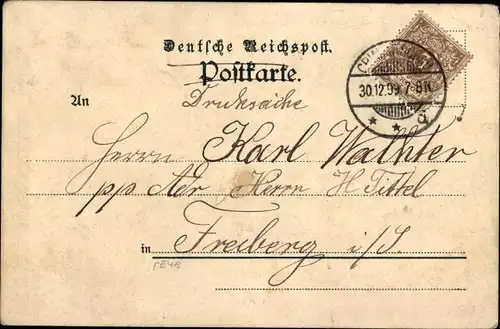 Deutsche Reichspost.
Postkarte.
Drucksache
An
Herrn Karl Walther
pp Adr Herrn H Tittel
in Freiberg i/S.
30.12.99. 7-8N.
d